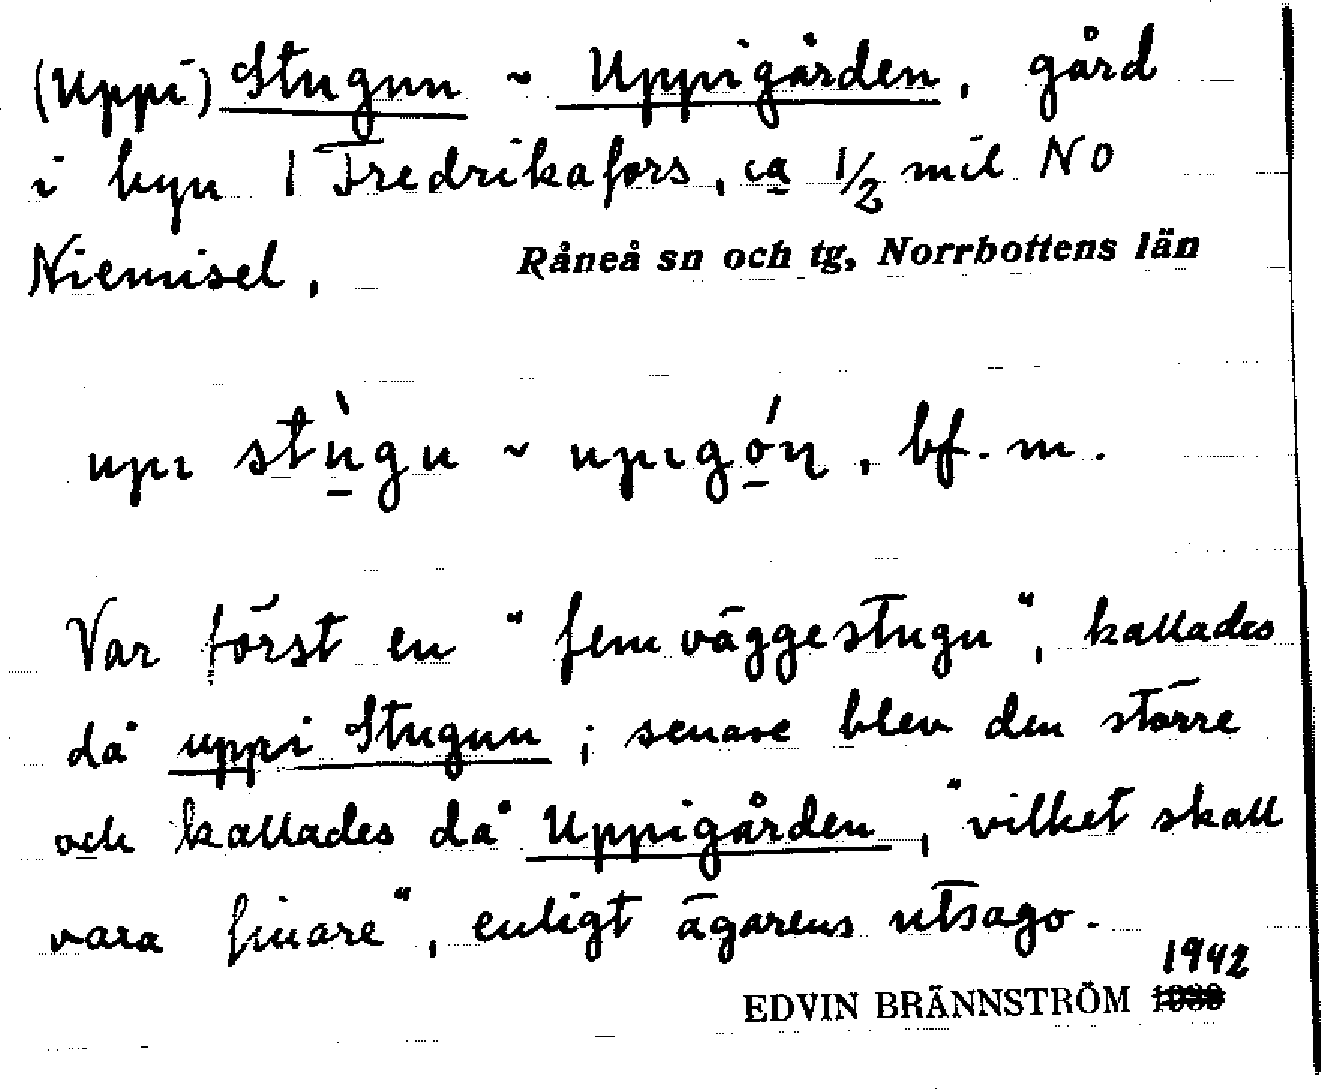 (Uppi) Stugun ~ Uppigården, gård
i byn | Fredrikafors, ca 1/2 mil NO
Niemisel,
Råneå sn och tg, Norrbottens län
upı stù̱gu ~ upıgó̱ɳ, bf. m.
Var först en "femväggestugu", kallades
då uppi Stugun; senare blev den större
och kallades då Uppigården, "vilket skall
vara finare", enligt ägarens utsago.
EDVIN BRÄNNSTRÖM 1942